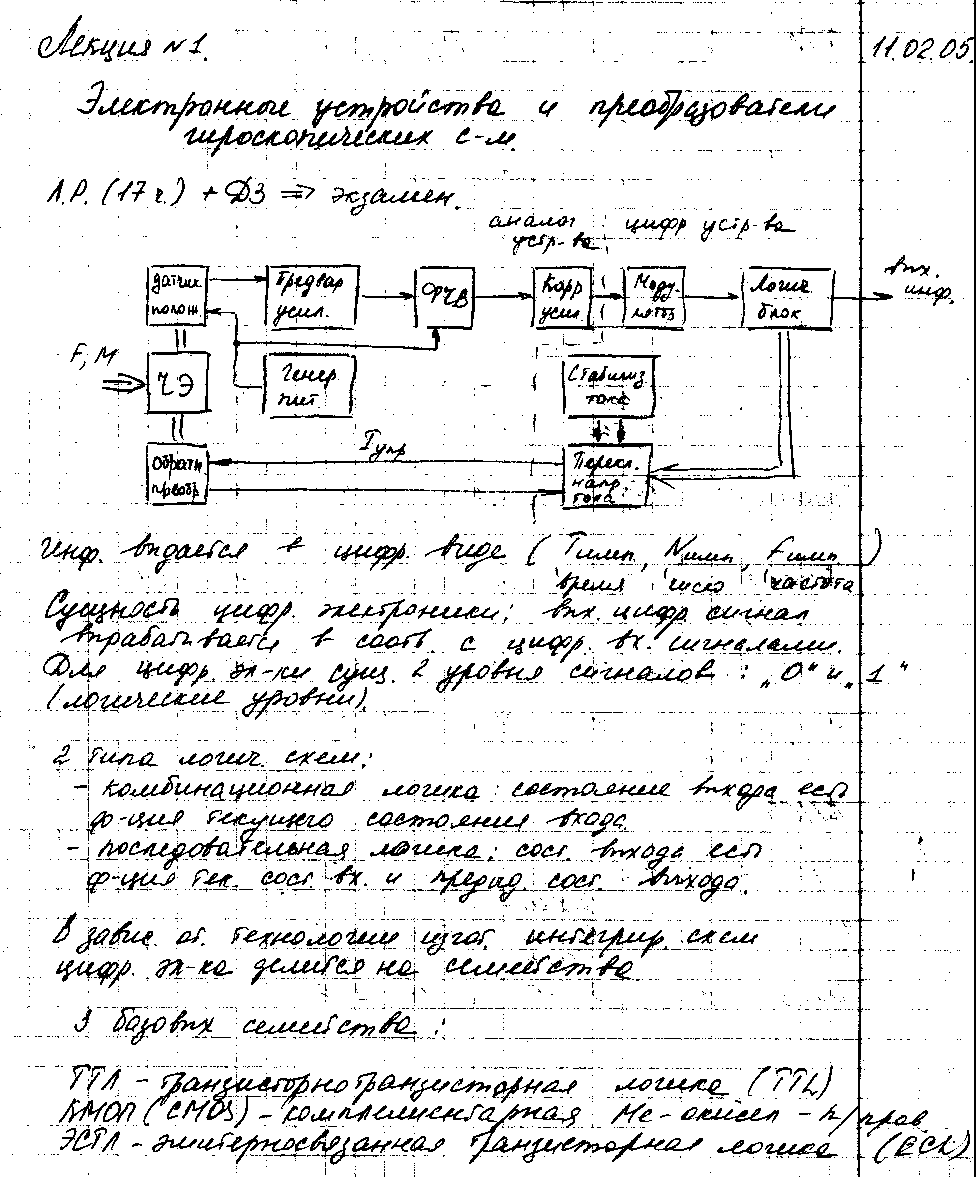 Лекция №1. 11.02.05.
Электронные устройства и преобразователи
гироскопических с-м.
Л.Р. (17 ч.) + ДЗ ⇒ экзамен.
аналог устр-ва
цифр устр-ва
датчик полож
Предвар усил.
ФЧВ
Корр усил.
Моду лятоз
Логич. блок
вых. инф.
F, M
ЧЭ
Генер. пит
Стабилиз тока
Обратн преобр
Iупр
Перекл. напр. тока
Инф. выдается в цифр. виде (Тимп, Nимп, Fимп)
время число частота
Сущность цифр. электроники: вых. цифр. сигнал
вырабатывается в соотв. с цифр. вх. сигналами.
Для цифр. эл-ки сущ. 2 уровня сигналов: „0“ и „1“
(логические уровни).
2 типа логич. схем:
- комбинационная логика: состояние выхода есть
ф-ция текущего состояния входа
- последовательная логика: сост. выхода есть
ф-ция тек. сост. вх. и предыд. сост. выхода.
В завис. от. технологии изгот. интегрир. схем
цифр. эл-ка делится на семейства
3 базовых семейства:
ТТЛ - транзисторнотранзисторная логика (TTL)
КМОП (CMOS) - комплементарная Ме-окисел-п/пров.
ЭСТЛ - эмитерносвязанная транзисторная логика (ECL)